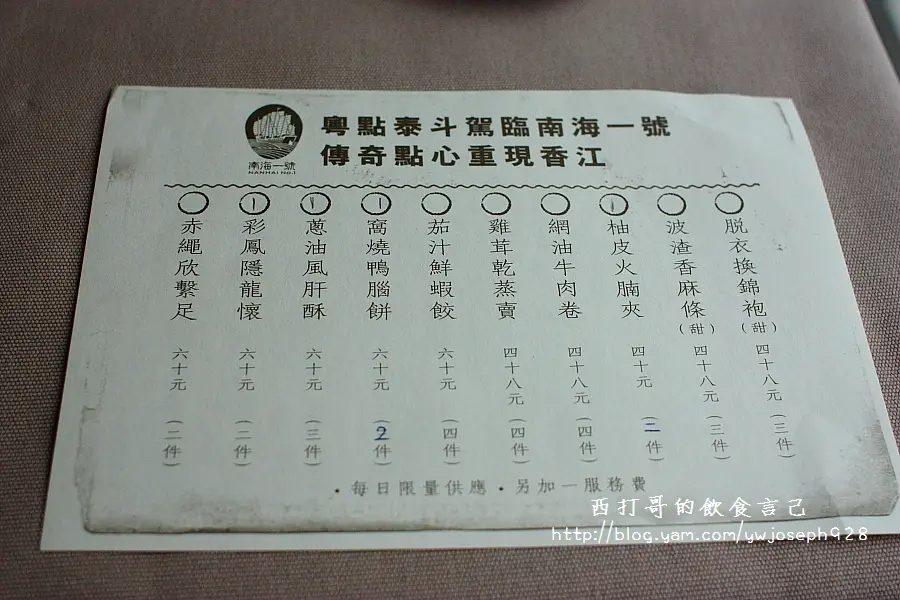 粵點泰斗駕臨南海一號
傳奇點心重現香江
南海一號
NANHAI No.1
脫衣換錦袍(甜) 四十八元 (三件)
波渣香麻條(甜) 四十八元 (三件)
柚皮火腩夾 四十元 (二件)
網油牛肉卷 四十八元 (四件)
雞茸乾蒸賣 四十八元 (四件)
茄汁鮮蝦餃 六十元 (四件)
窩燒鴨腦餅 六十元 (2件)
蔥油風肝酥 六十元 (三件)
彩鳳隱龍懷 六十元 (二件)
赤繩欣繫足 六十元 (二件)
・每日限量供應・另加一服務費
西打哥的飲食言己
http://blog.yam.com/ywjoseph928